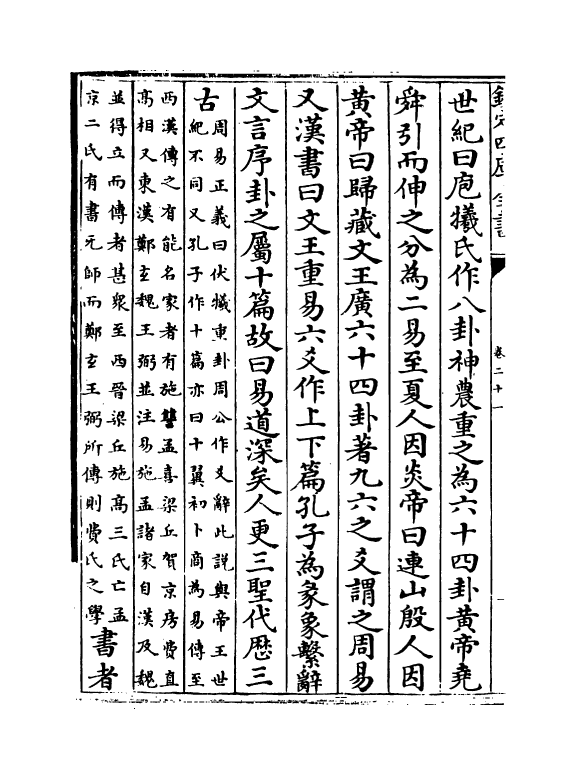 欽定四庫全書
卷二十一
世紀曰庖犧氏作八卦神農重之為六十四卦黄帝堯
舜引而伸之分為二易至夏人因炎帝曰連山殷人因
黄帝曰歸藏文王廣六十四卦著九六之爻謂之周易
又漢書曰文王重易六爻作上下篇孔子為彖象繫辭
文言序卦之屬十篇故曰易道深矣人更三聖代歴三
古
周易正義曰伏犧重卦周公作爻辭此說與帝王世
紀不同又孔子作十篇亦曰十翼初卜商為易傳至
西漢傳之有能名家者有施讐孟喜梁丘賀京房費直
高相又東漢鄭玄魏王弼並注易施孟諸家自漢及魏
並得立而傳者甚衆至西晉梁丘施高三氏亡孟
京二氏有書元師而鄭玄王弼所傳則費氏之學
書者